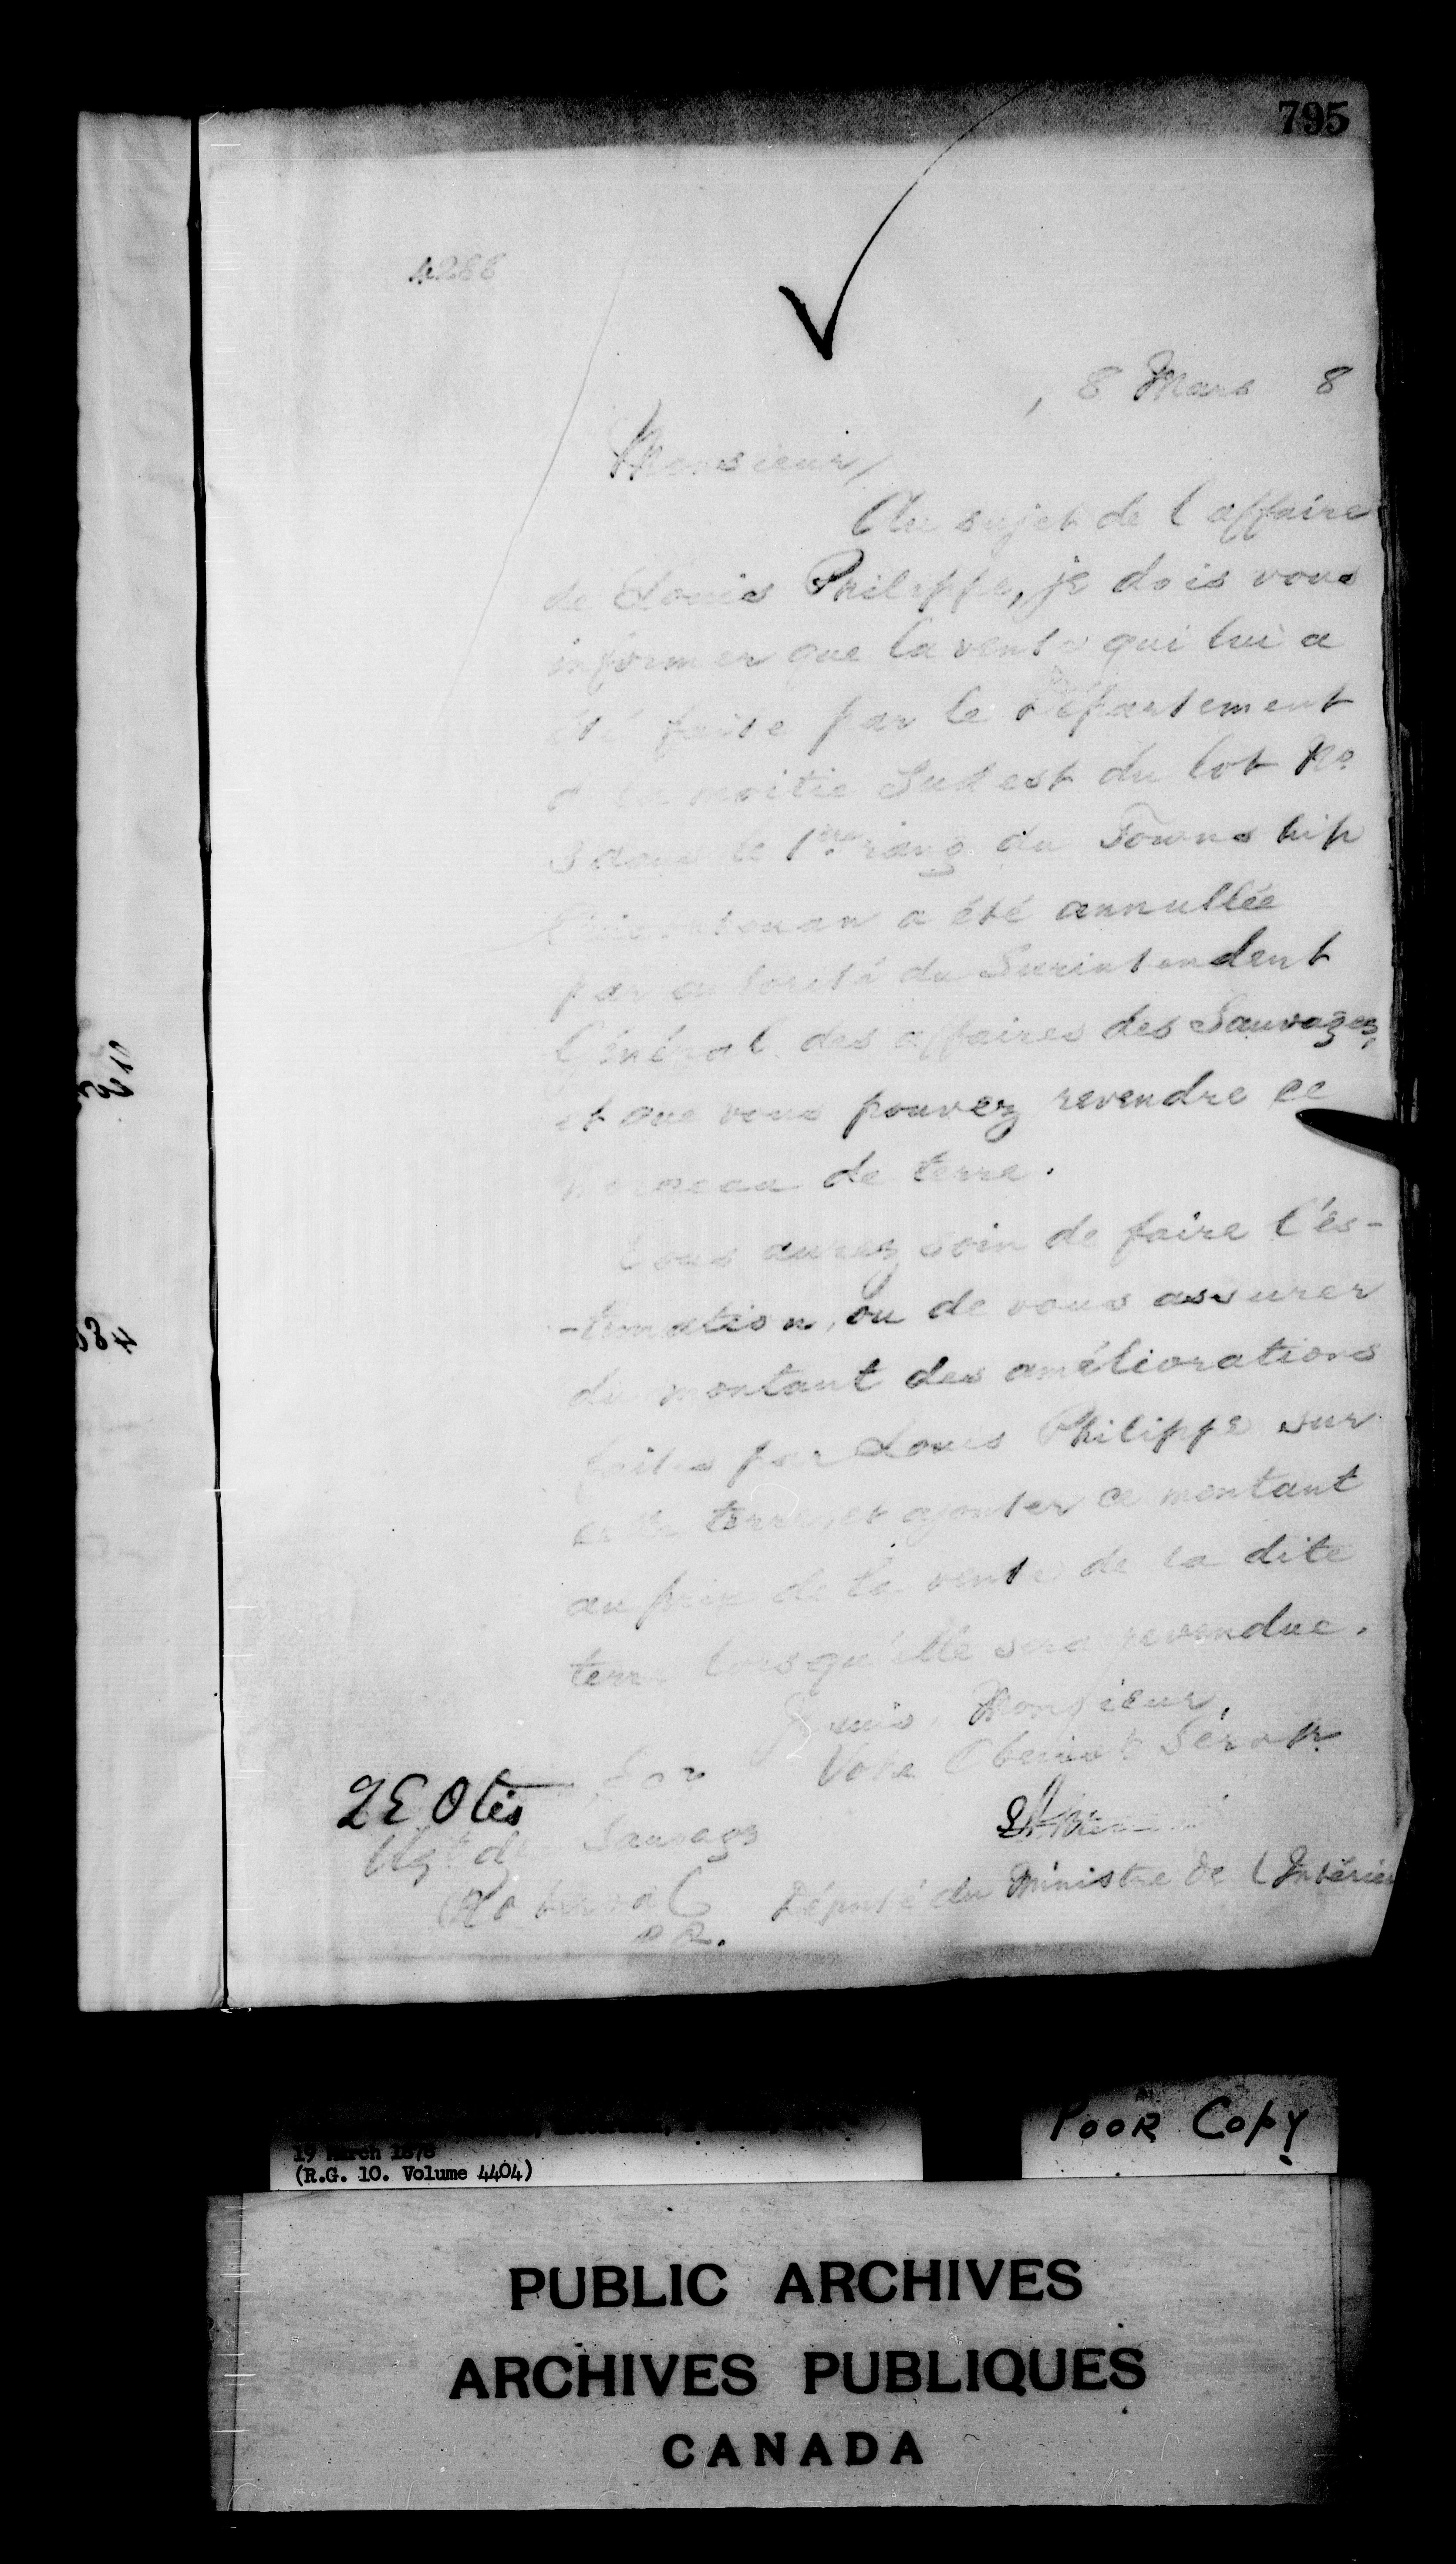 795
4288
, 8 Mars 8
Monsieur,
Au sujet de l affaire
de Louis Philippe, je dois vous
informer que la vente qui lui a
été faite par le Département
la moitie Sud est du lot No
3 dans le 1er rang du Township
a été annullée
par autorité du Surintendent
Général des affaires des Sauvages,
et que vous pouvez revendre ce
morceau de terre.
Vous aurez soin de faire l'és-
-timation, ou de vous assurer
du montant des améliorations
faites par Louis Philippe sur
cette terre, et ajouter ce montant
au prix de la vente de la dite
terre lorsqu'elle sera revendue.
Je suis, Monsieur,
Votre Obeissant Servtr
L E Otis
Agt des Sauvages
Roberval
P. Q.
Député du Ministre de l Intérieu
19 March 1878
(R.G. 10. Volume 4404)
POOR COPY
PUBLIC ARCHIVES
ARCHIVES PUBLIQUES
CANADA